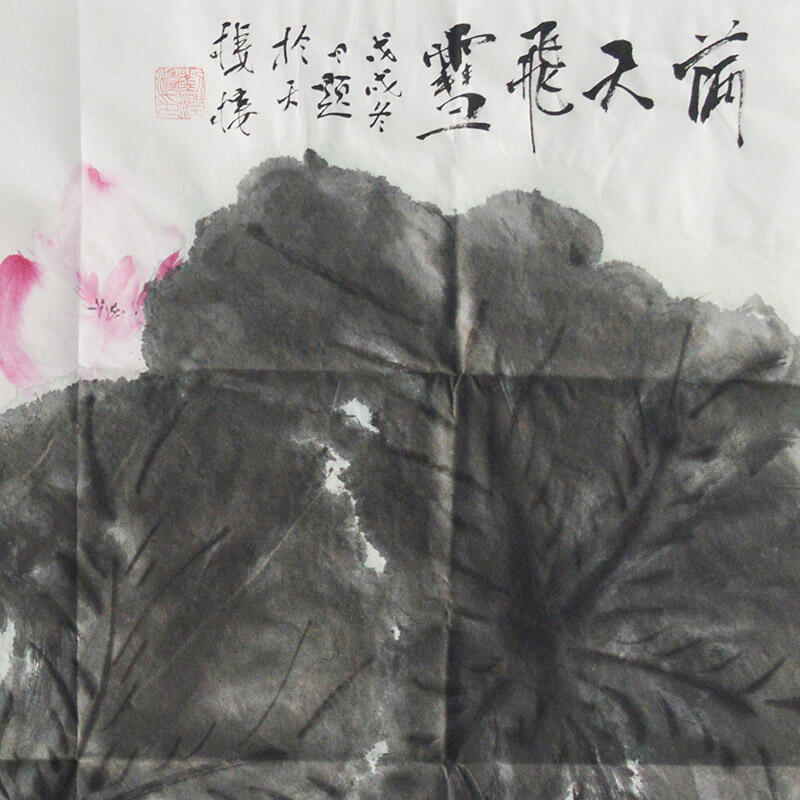 滿天飛雪
戊戌冬
月題
於天